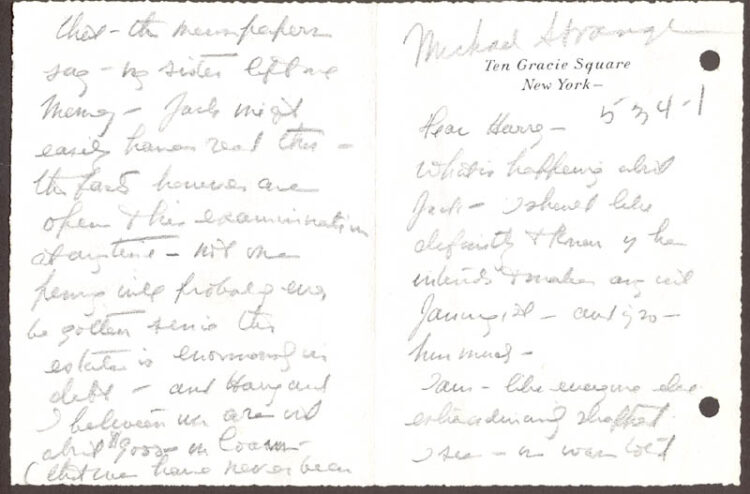 Michael Strange
Ten Gracie Square
New York —
5 3 4 - 1
Dear Harry —
What is happening about
Jack — I should like
definitely to know if he
intends to make any
January — and if so —
how much —
I am — like everyone else
I see —
that — the newspapers
say — my sister left me
money — Jack might
easily have read this —
the facts however are
open to his examination
at anytime — not one
penny will probably ever
be gotten since the
estate is enormously in
debt — and Harry and
I between us are out
about in loans —
(that we have never been